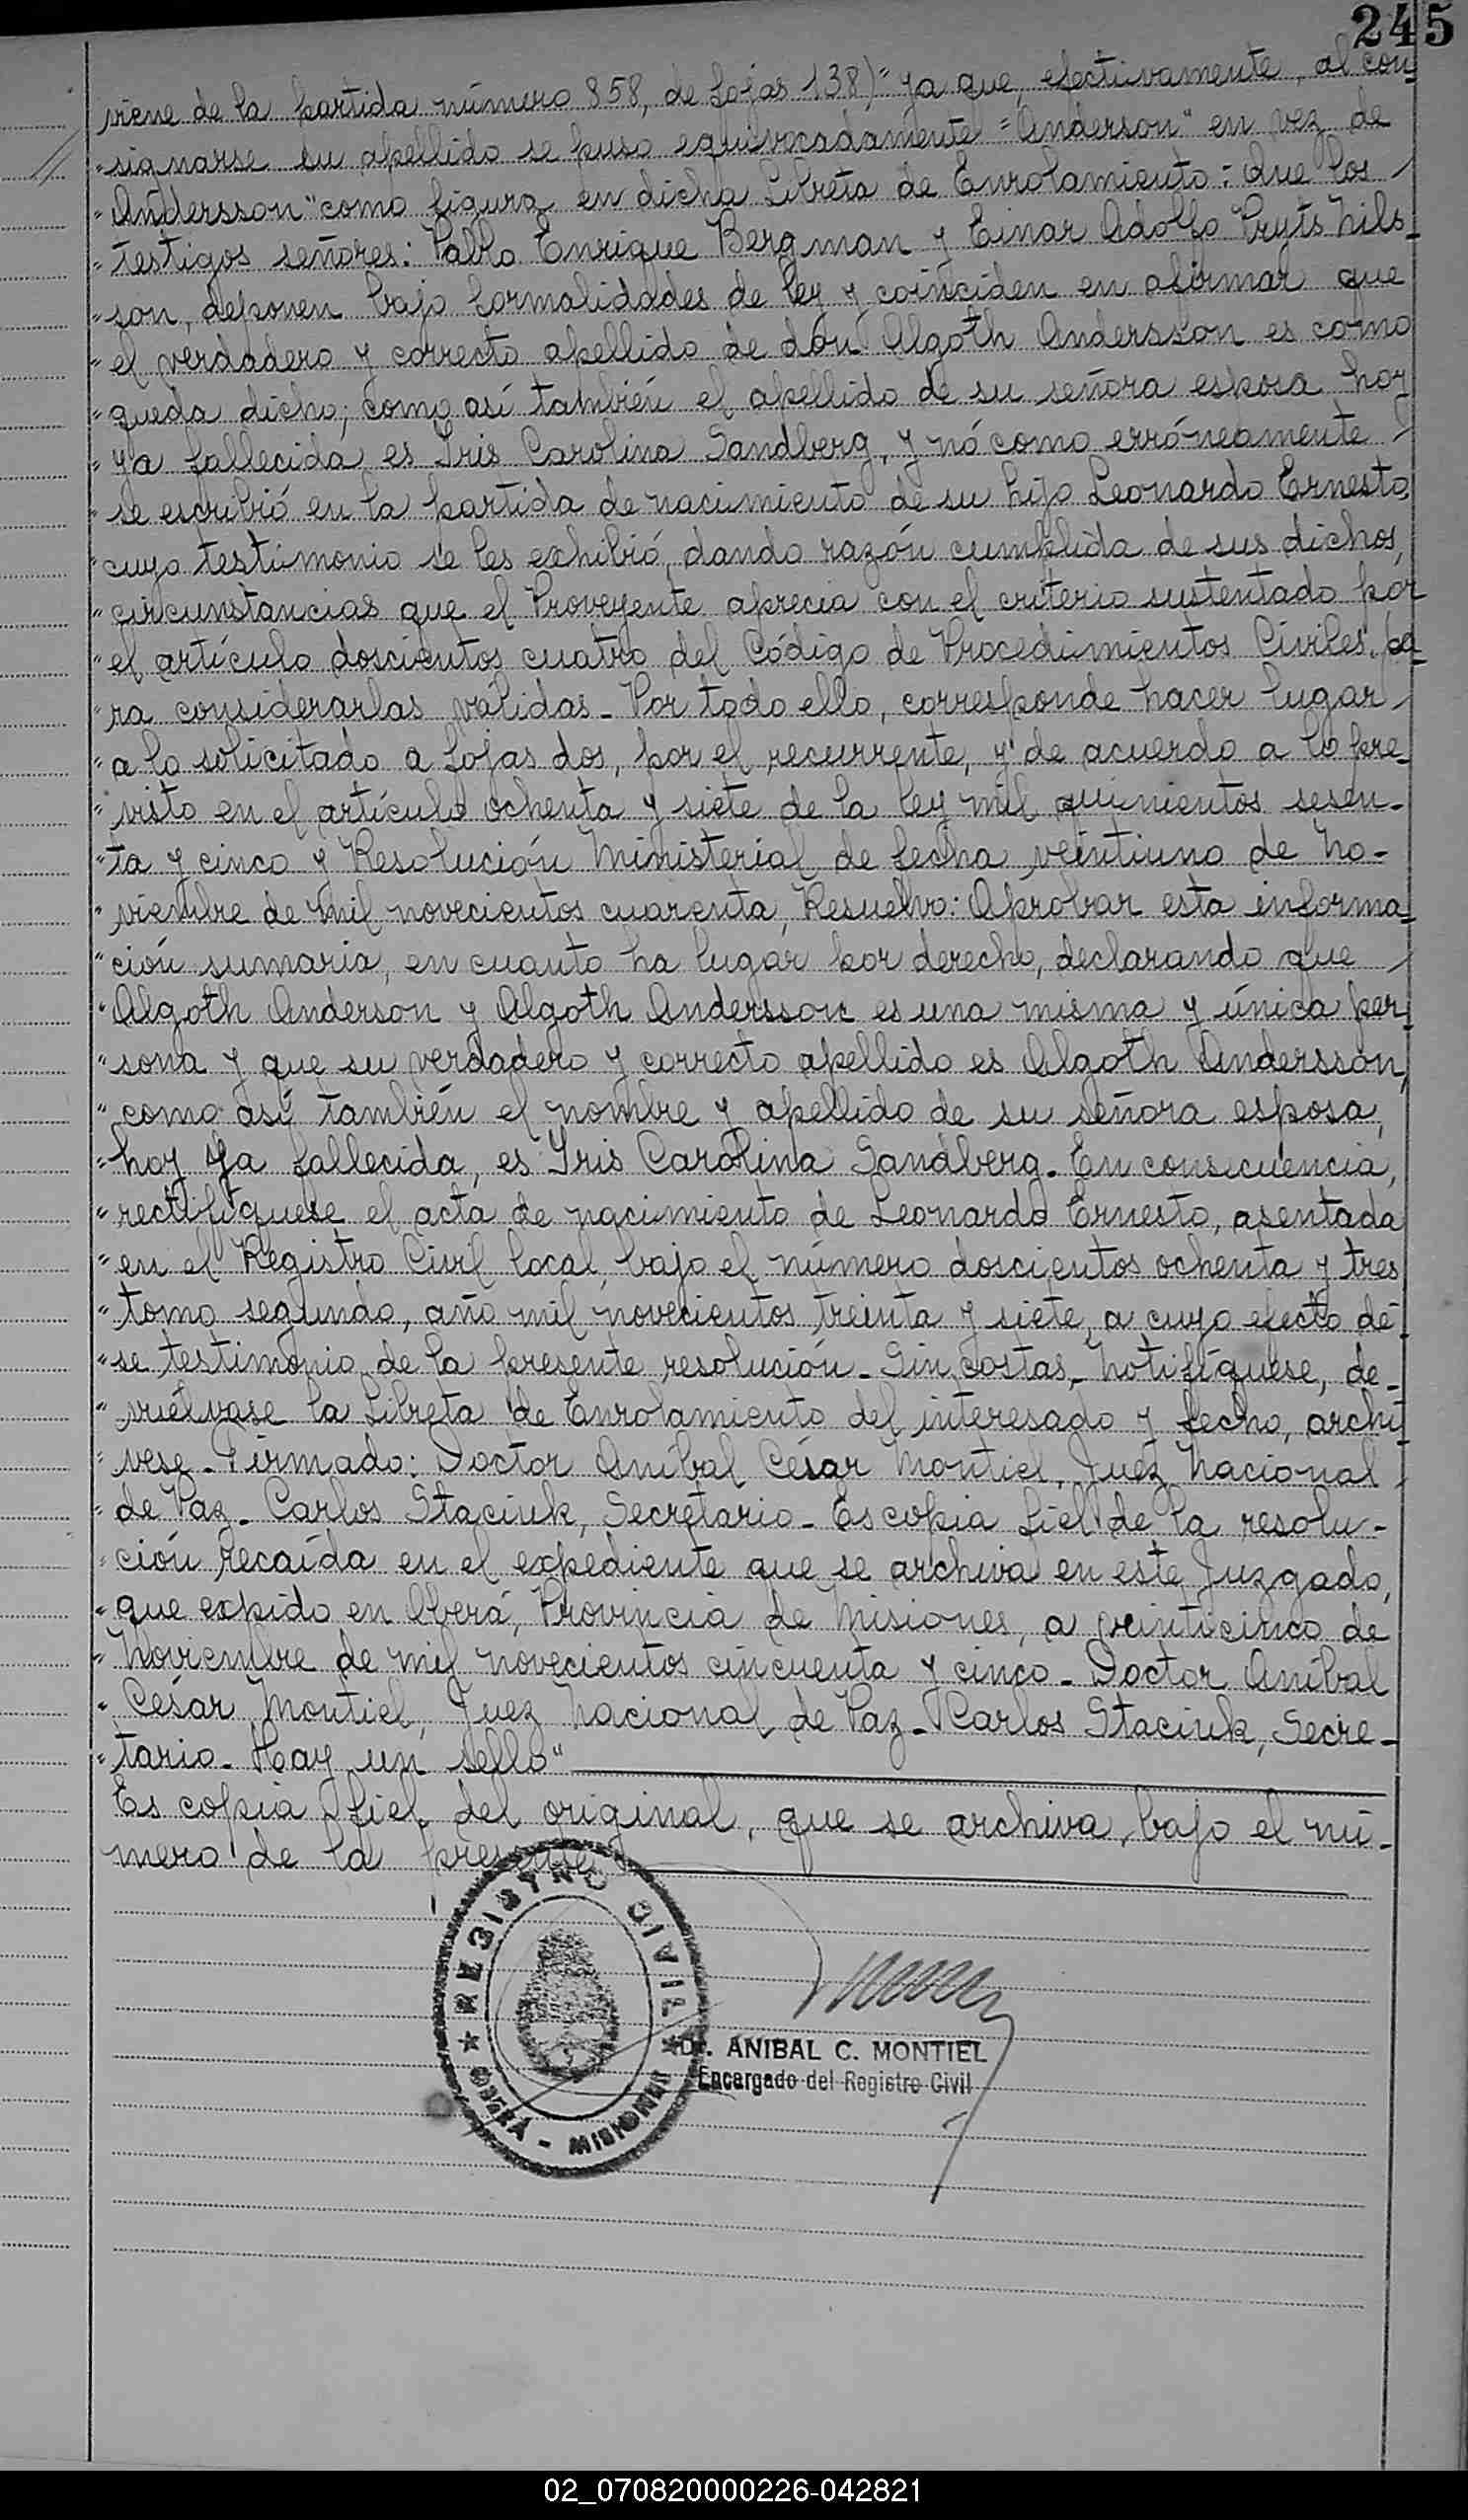 245
viene de la partida número 858, de fojas 138) " ya que, efectivamente, al con-
" signarse su apellido se puso equivocadamente "Anderson" en vez de
" Andersson" como figura en dicha Libreta de Enrolamiento: Que los
" testigos señores: Pablo Enrique Bergman y Einar Adolfo Pryts Nils-
" son, deponen bajo formalidades de ley y coinciden en afirmar que
" el verdadero y correcto apellido de don Algoth Andersson es como
" queda dicho; como así también el apellido de su señora esposa hoy
" ya fallecida es Iris Carolina Sandberg, y nó como erróneamente
" se escribió en la partida de nacimiento de su hijo Leonardo Ernesto,
" cuyo testimonio se les exhibió, dando razón cumplida de sus dichos,
" circunstancias que el Proveyente aprecia con el criterio sustentado por
" el artículo doscientos cuatro del Código de Procedimientos Civiles, pa-
" ra considerarlas válidas - Por todo ello, corresponde hacer lugar
" a lo solicitado a fojas dos, por el recurrente, y de acuerdo a lo pre-
" visto en el artículo ochenta y siete de la ley mil quinientos sesen-
" ta y cinco y Resolución Ministerial de fecha veintiuno de No-
" viembre de mil novecientos cuarenta, Resuelvo: Aprobar esta informa-
" ción sumaria, en cuanto ha lugar por derecho, declarando que
" Algoth Anderson y Algoth Andersson es una misma y única per-
" sona y que su verdadero y correcto apellido es Algoth Andersson,
" como así también el nombre y apellido de su señora esposa,
" hoy ya fallecida, es Iris Carolina Sandberg. En consecuencia,
" rectifíquese el acta de nacimiento de Leonardo Ernesto, asentada
" en el Registro Civil local, bajo el número doscientos ochenta y tres
" tomo segundo, año mil novecientos treinta y siete, a cuyo efecto dé-
" se testimonio de la presente resolución - Sin costas, Notifíquese, de-
" vuélvase la Libreta de Enrolamiento del interesado y fecho, archí-
" vese - Firmado: Doctor Aníbal César Montiel, Juez Nacional
" de Paz - Carlos Staciuk, Secretario - Es copia fiel de la resolu-
" ción recaída en el expediente que se archiva en este Juzgado,
" que expido en Oberá, Provincia de Misiones, a veinticinco de
" Noviembre de mil novecientos cincuenta y cinco - Doctor Aníbal
" César Montiel, Juez Nacional de Paz - Carlos Staciuk, Secre-
" tario - Hay un sello"
Es copia fiel del original, que se archiva, bajo el nú-
mero de la presente
REGISTRO CIVIL
OBERA - MISIONES
Dr. ANIBAL C. MONTIEL
Encargado del Registro Civil
02_070820000226-042821